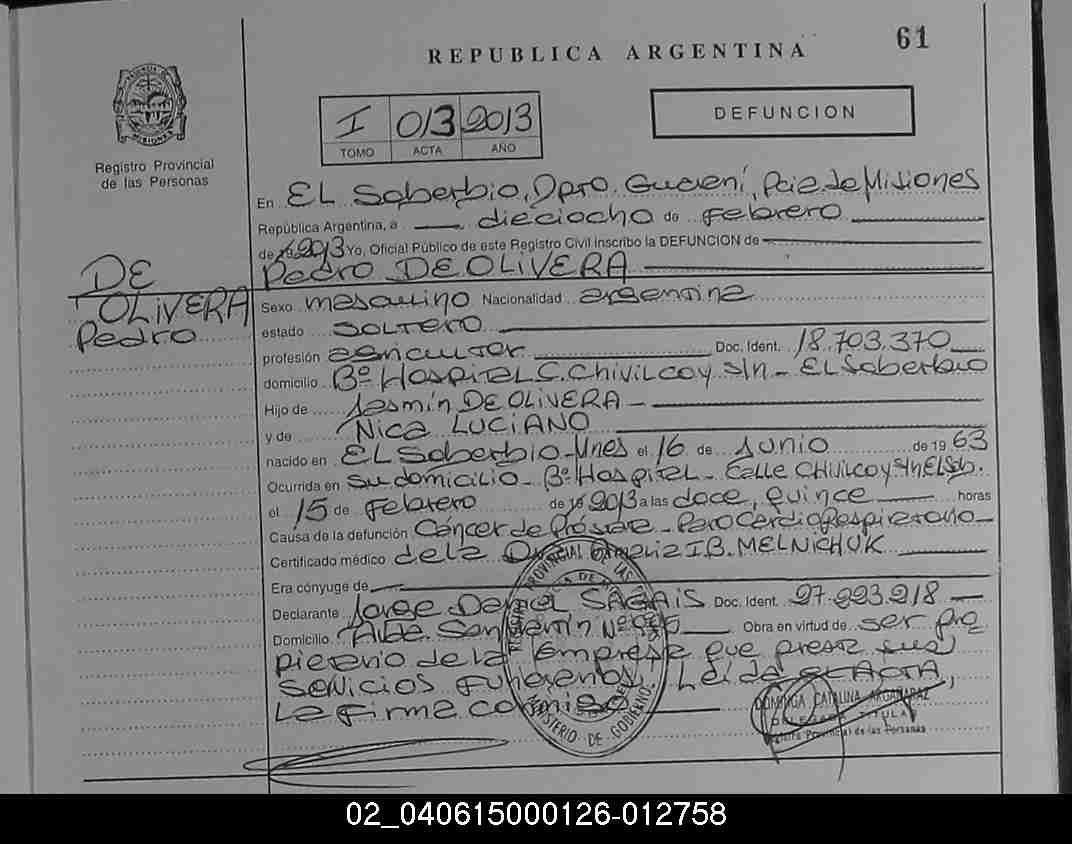 REPUBLICA ARGENTINA
61
I 013 2013
TOMO ACTA AÑO
DEFUNCION
PROVINCIA DE
MISIONES
Registro Provincial
de las Personas
DE
OLIVERA
Pedro
En EL Soberbio, Dpto. Guaraní, Pcia de Misiones
República Argentina, a dieciocho de Febrero
de 19 2013 Yo, Oficial Público de este Registro Civil inscribo la DEFUNCION de
Pedro DE OLIVERA
Sexo masculino Nacionalidad argentina
estado soltero
profesión agricultor Doc. Ident. 18.703.370
domicilio Bº Hospital C. Chivilcoy s/n - El Soberbio
Hijo de DE OLIVERA
y de LUCIANO
nacido en EL Soberbio - Mnes el 16 de Junio de 19 63
Ocurrida en su domicilio - Bº Hospital - Calle Chivilcoy s/n El Sob.
el 15 de Febrero de 19 2013 a las doce, quince horas
Causa de la defunción Cáncer de Próstata - Paro Cardio Respiratorio
Certificado médico de la I.B. MELNICHUK
Era cónyuge de
Declarante Jorge Daniel Doc. Ident. 27.223.218
Domicilio San Martín Nº Obra en virtud de ser pro
pietario de la Empresa que presta sus
servicios fúnebres, Leída el ACTA,
La firma conmigo
MINISTERIO DE GOBIERNO
DOMINGA CATALINA ARGAÑARAZ
DELEGADA TITULAR
Registro Provincial de las Personas
02_040615000126-012758